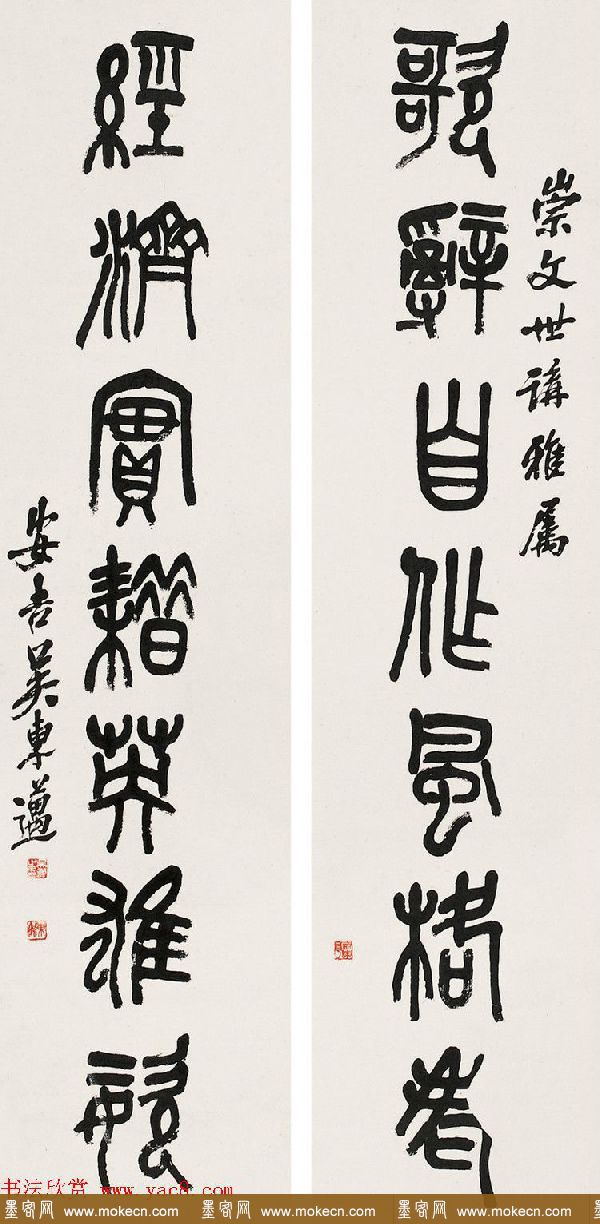 崇文世講雅屬
歌辭自作風格老
經濟實耤英雄姿
安吉吳東邁
书法欣赏 www.yac8.com
墨客网 www.mokecn.com 墨客网 www.mokecn.com 墨客网 www.mokecn.com